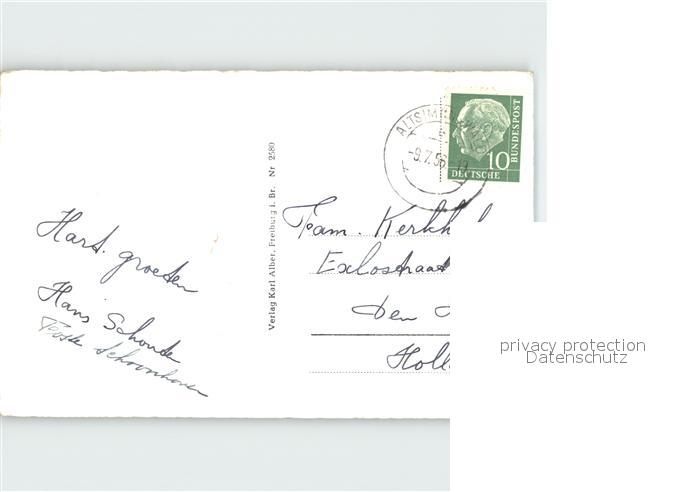 Hart. groeten
Hans Schonde
Schoonhoven
Verlag Karl Alber, Freiburg i. Br. Nr 2580
-9.7.56
10
DEUTSCHE
BUNDESPOST
Fam. Kerkh
Exlostraat
Den
Holl
privacy protection
Datenschutz